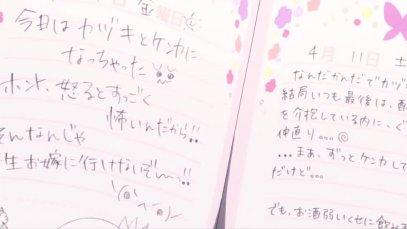 金曜日
今日はカヅキとケンカに
なっちゃった
ホント、怒るとすっごく
怖いんだから!!
そんなんじゃ
生お嫁に行けないぞーっ!!
4月 11日 土
なんだかんだでカヅ
結局いつも最後は、
を介抱している内に、ぐ
仲直り...
...まあ、ずっとケンカして
だけど...
でも、お酒弱いくせに飲み